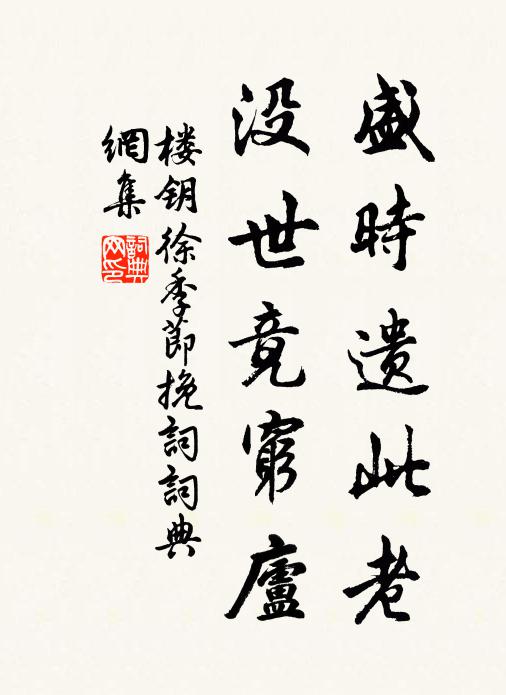 盛時遺此老
没世竟窮廬
楼钥徐季節挽詞詞典
網集
詞典
网印